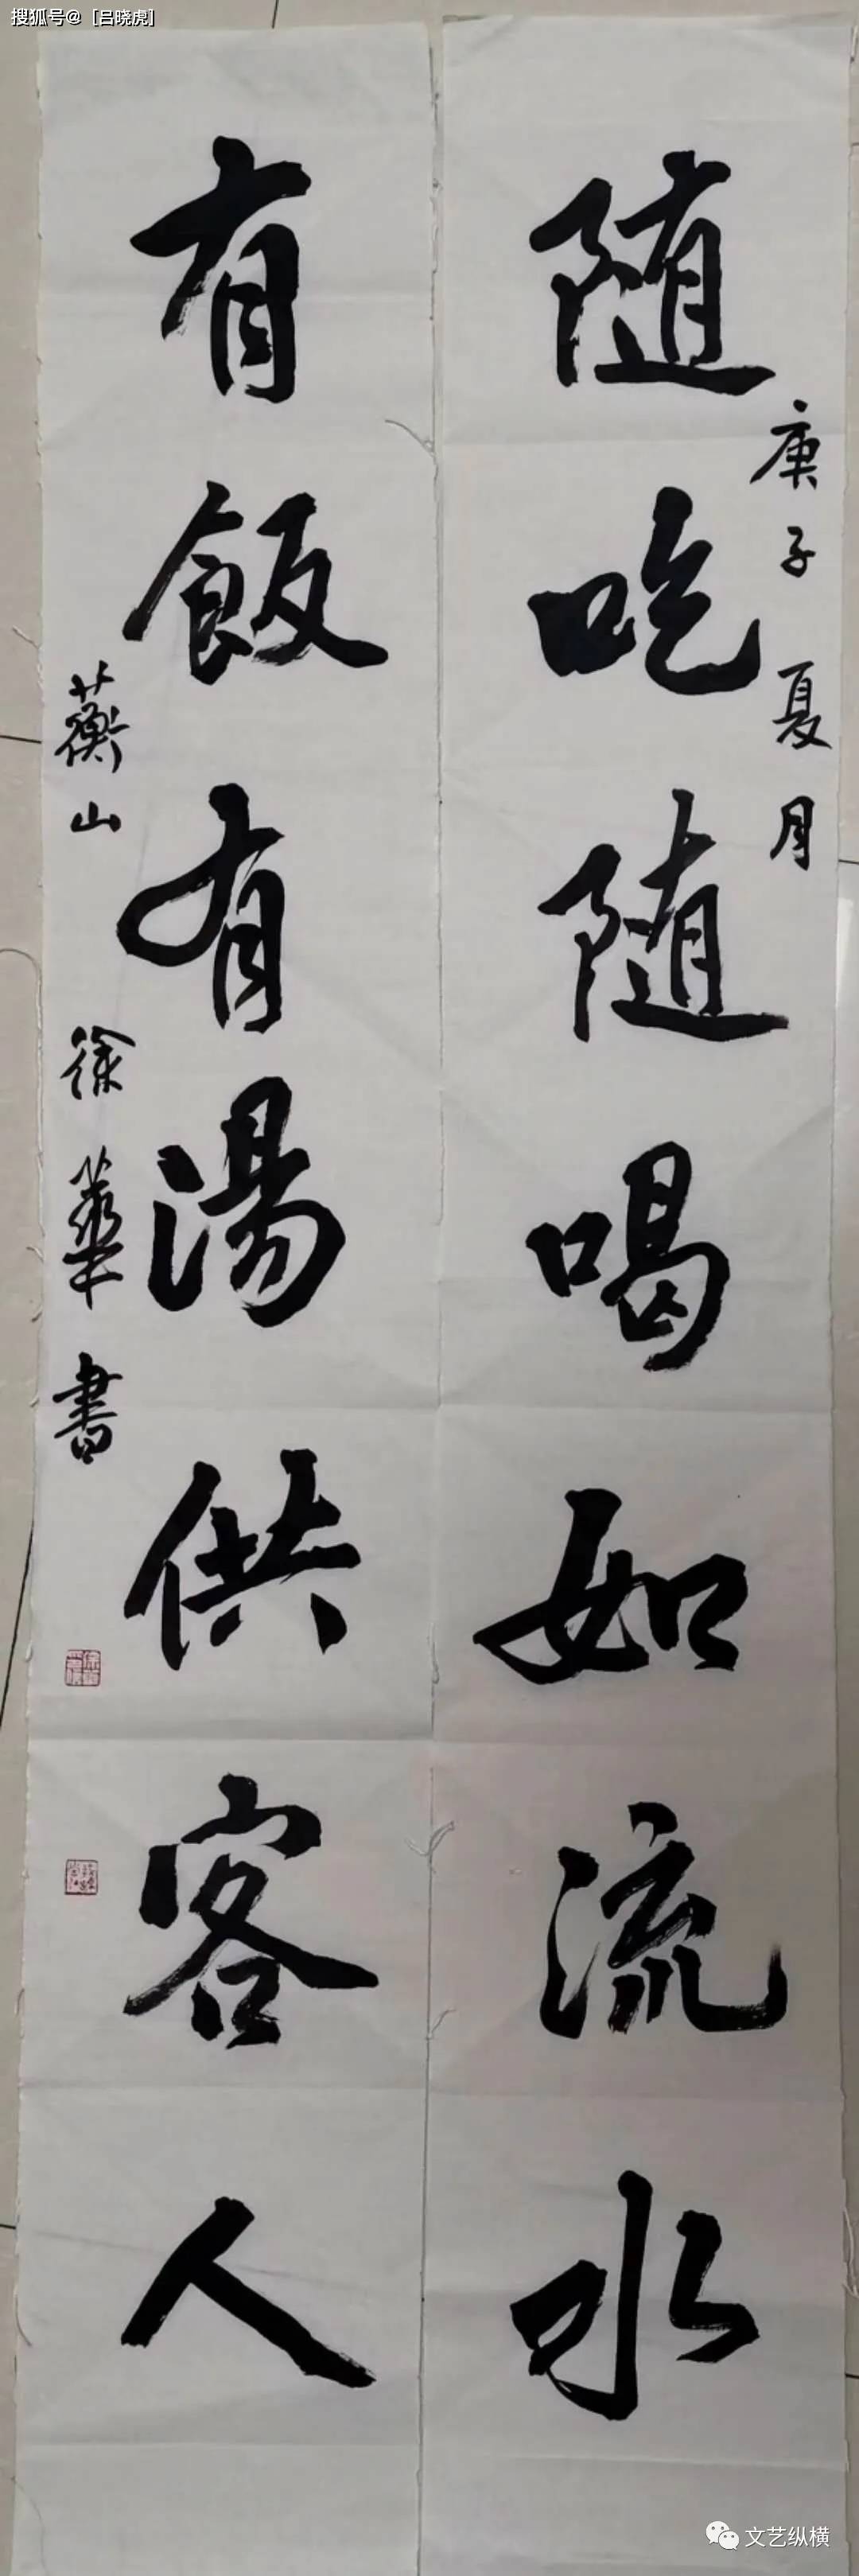 搜狐号@[吕晓虎]
庚子夏月
随吃随喝如流水
有飯有湯供客人
蘅山 徐華書
文艺纵横